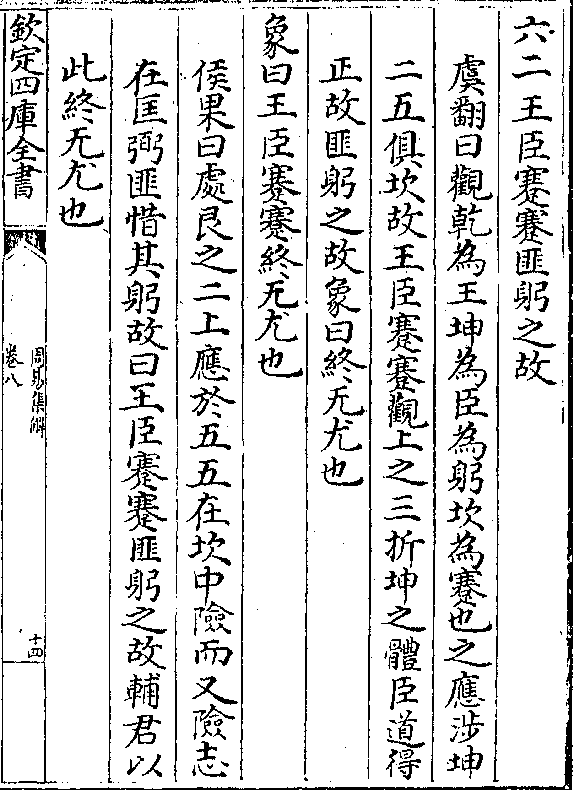 六二王臣蹇蹇匪躬之故
虞翻曰觀乾為王坤為臣為躬坎為蹇也之應涉坤
二五俱坎故王臣蹇蹇觀上之三折坤之體臣道得
正故匪躬之故象曰終无尤也
象曰王臣蹇蹇終无尤也
侯果曰處艮之二上應於五五在坎中險而又險志
在匡弼匪惜其躬故曰王臣蹇蹇匪躬之故輔君以
此終无尤也
欽定四庫全書
周易集解
卷八
十四